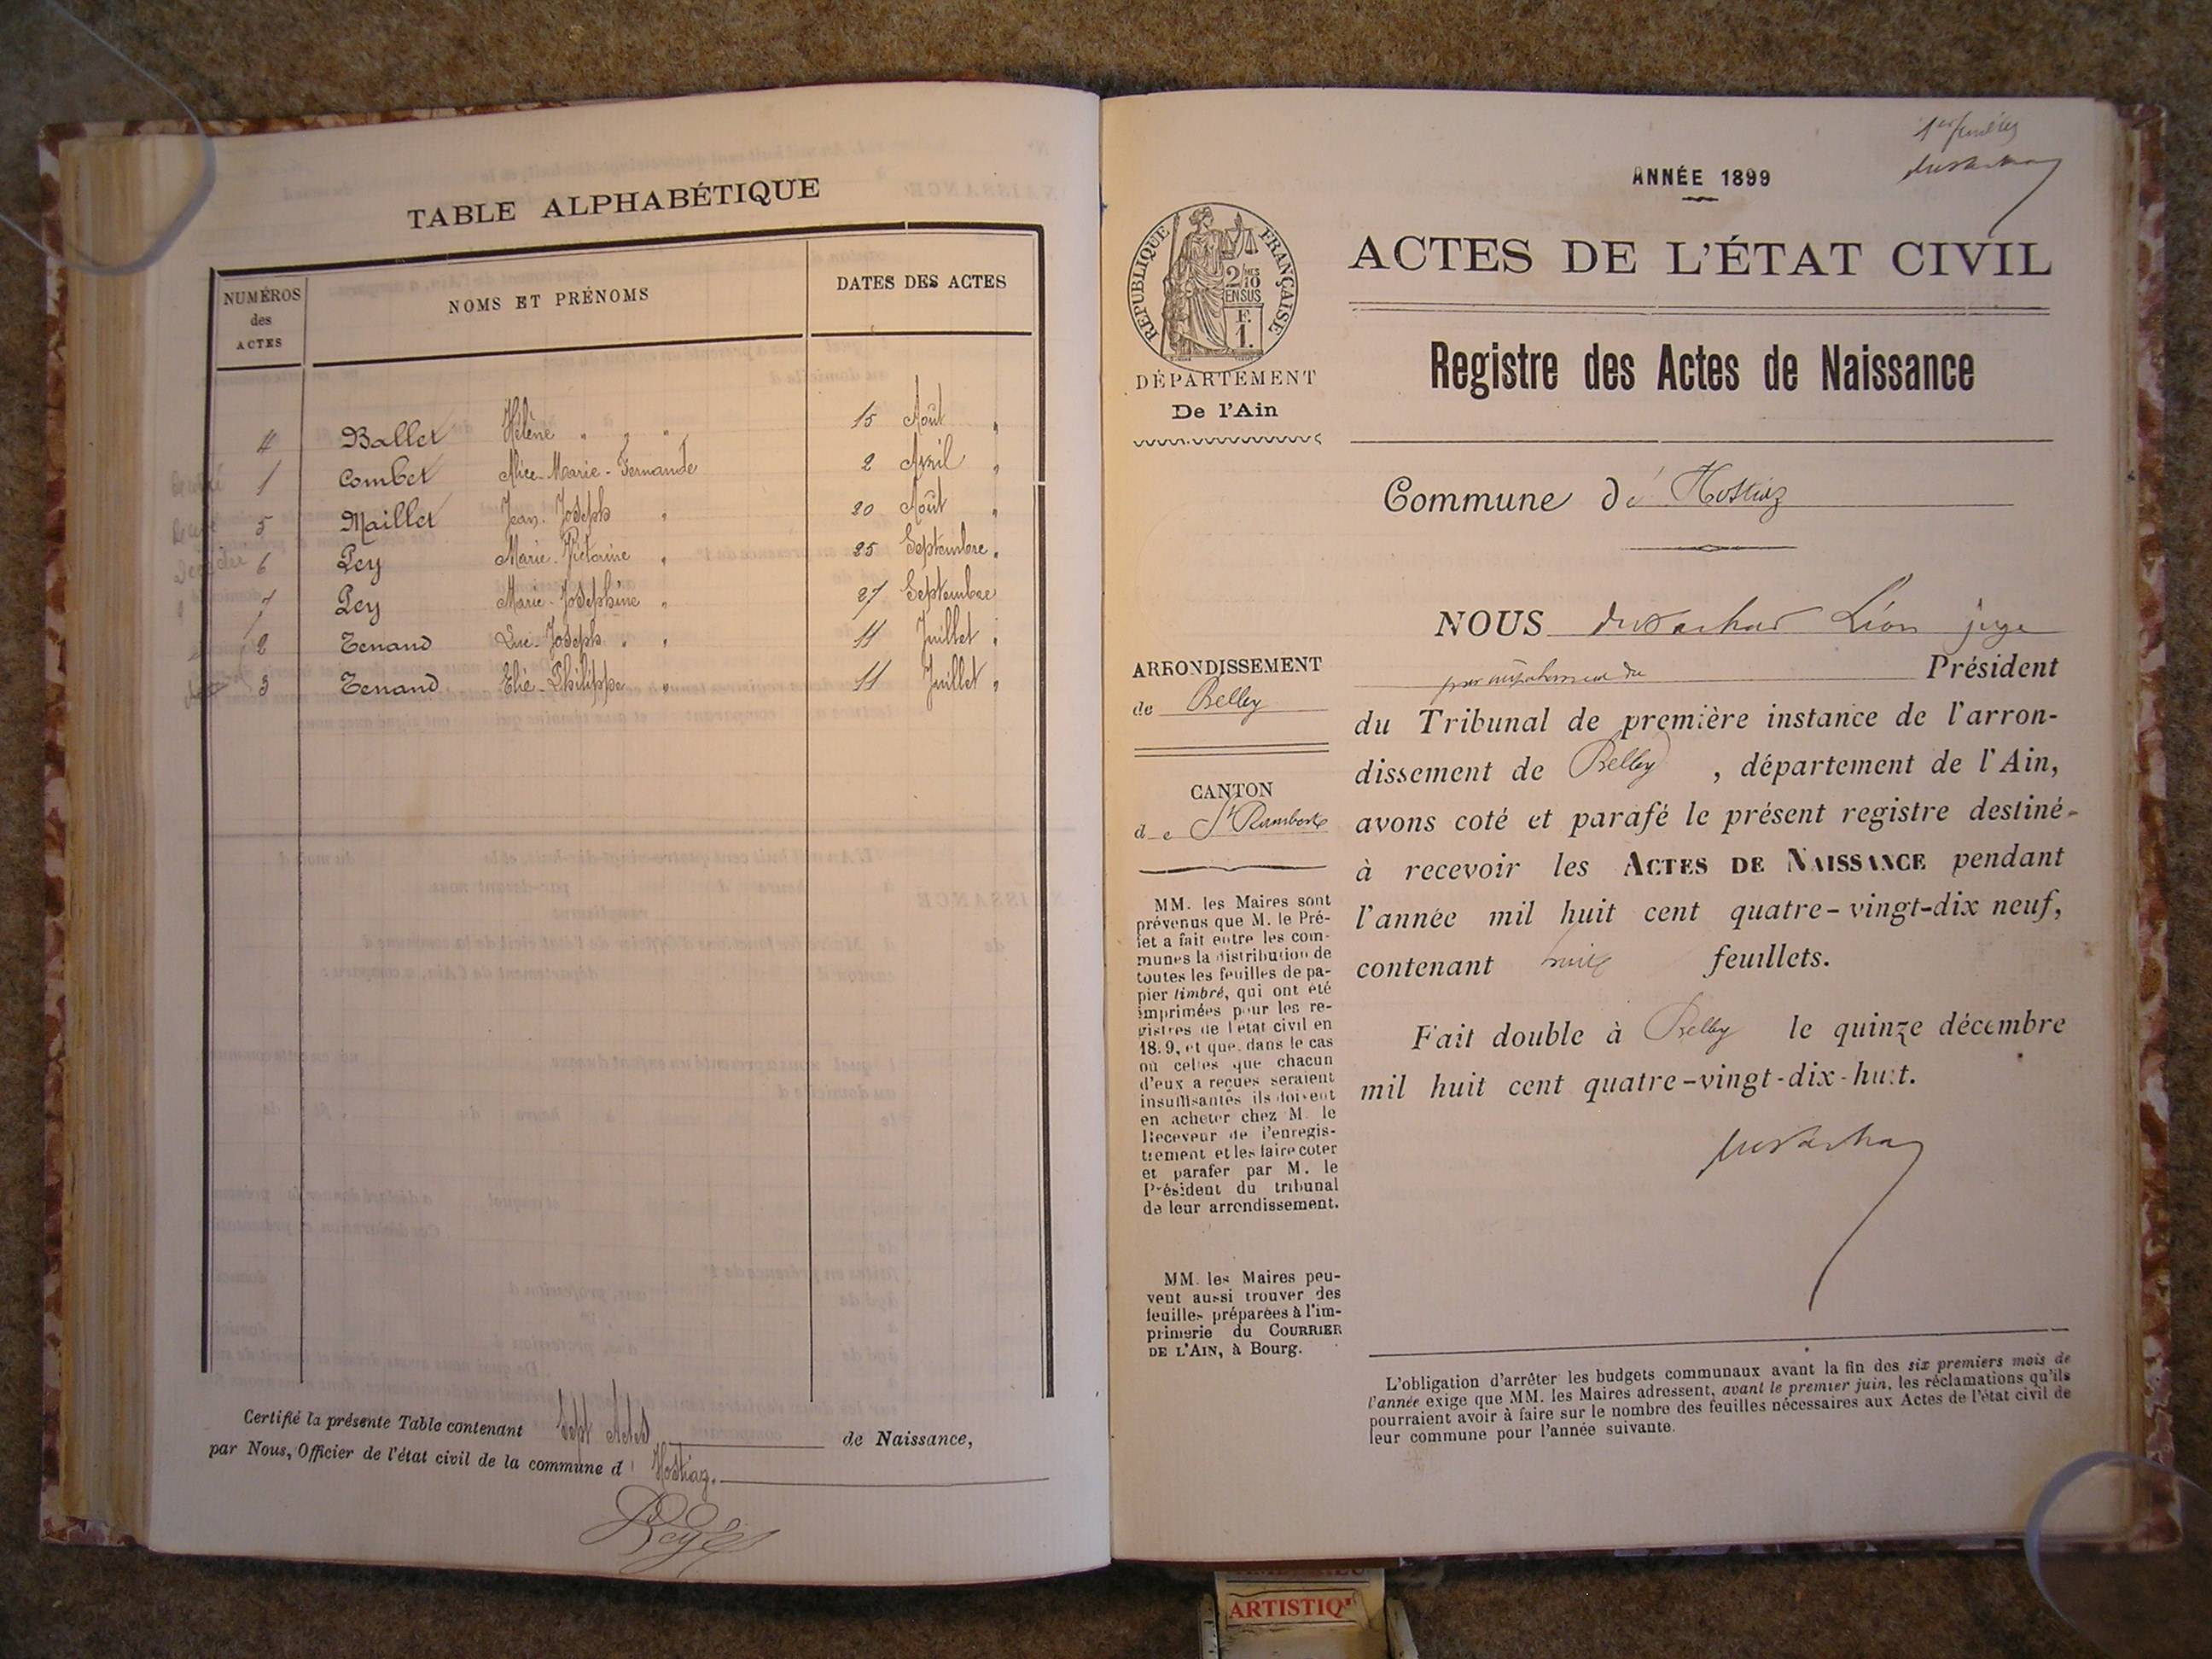 TABLE ALPHABÉTIQUE
NUMÉROS des ACTES
NOMS ET PRÉNOMS
DATES DES ACTES
4 Ballet Hélène " " " 15 Août "
1 Combet Alice-Marie-Fernande 2 Avril "
5 Maillet Jean-Joseph " 20 Août "
6 Pey Marie-Victorine " 25 Septembre "
7 Pey Marie-Joséphine " 27 Septembre
2 Tenand Luc-Joseph " " 11 Juillet "
3 Tenand Elie-Philippe " 11 Juillet "
Certifié la présente Table contenant Sept Actes de Naissance,
par Nous, Officier de l'état civil de la commune d' Hostiaz.
1er feuillet
ANNÉE 1899
RÉPUBLIQUE FRANÇAISE
2/10 MES
EN SUS
F.
1.
DÉPARTEMENT
De l'Ain
ACTES DE L'ÉTAT CIVIL
Registre des Actes de Naissance
Commune d' Hostiaz
ARRONDISSEMENT
de Belley
CANTON
de St Rambert
MM. les Maires sont
prévenus que M. le Pré-
fet a fait entre les com-
munes la distribution de
toutes les feuilles de pa-
pier timbré, qui ont été
imprimées pour les re-
gistres de l'état civil en
18.9, et que, dans le cas
où celles que chacun
d'eux a reçues seraient
insuffisantes ils doivent
en acheter chez M. le
Receveur de l'enregis-
trement et les faire coter
et parafer par M. le
Président du tribunal
de leur arrondissement.
MM. les Maires peu-
vent aussi trouver des
feuilles préparées à l'im-
primerie du COURRIER
DE L'AIN, à Bourg.
NOUS Léon juge
Président
du Tribunal de première instance de l'arron-
dissement de Belley, département de l'Ain,
avons coté et parafé le présent registre destiné
à recevoir les ACTES DE NAISSANCE pendant
l'année mil huit cent quatre-vingt-dix neuf,
contenant huit feuillets.
Fait double à Belley le quinze décembre
mil huit cent quatre-vingt-dix-huit.
L'obligation d'arrêter les budgets communaux avant la fin des six premiers mois de
l'année exige que MM. les Maires adressent, avant le premier juin, les réclamations qu'ils
pourraient avoir à faire sur le nombre des feuilles nécessaires aux Actes de l'état civil de
leur commune pour l'année suivante.
ARTISTIQ